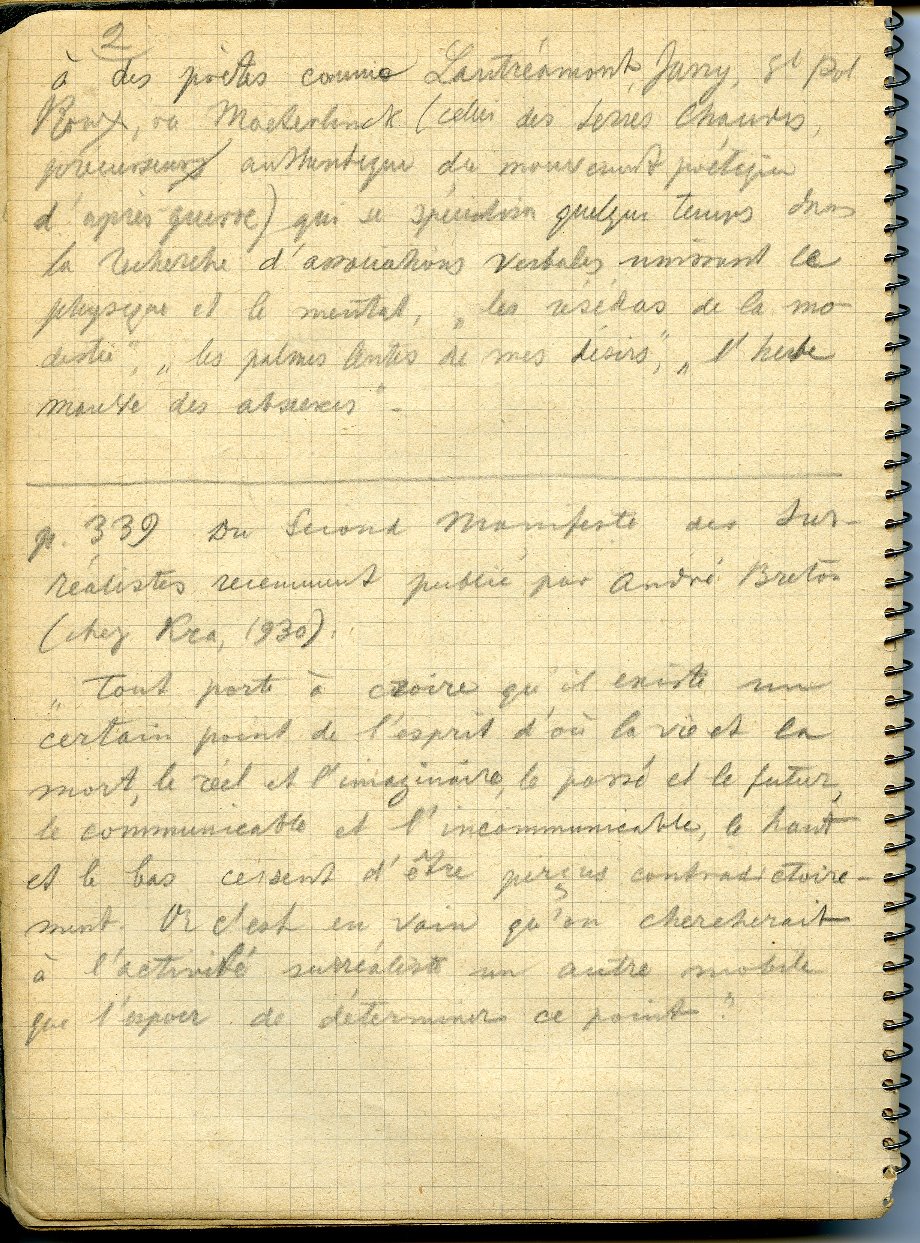 2
à des poètes comme Lautréamont, Jarry, St Pol
Roux, ou Maeterlinck (celui des Serres Chaudes,
précurseur authentique du mouvement poétique
d'après guerre) qui se spécialisa quelque temps dans
la recherche d'associations verbales unissant le
physique et le mental, „les résédas de la mo-
destie", „les palmes lentes de mes désirs", „l'herbe
mauve des absences" -
p. 339 Du Second Manifeste des Sur-
réalistes recemment publié par André Breton
(chez Kra, 1930).
„Tout porte à croire qu'il existe un
certain point de l'esprit d'où la vie et la
mort, le réel et l'imaginaire, le passé et le futur,
le communicable et l'incommunicable, le haut
et le bas cessent d'être perçus contradictoire-
ment. Or c'est en vain qu'on chercherait
à l'activité surréaliste un autre mobile
que l'espoir de déterminer ce point".